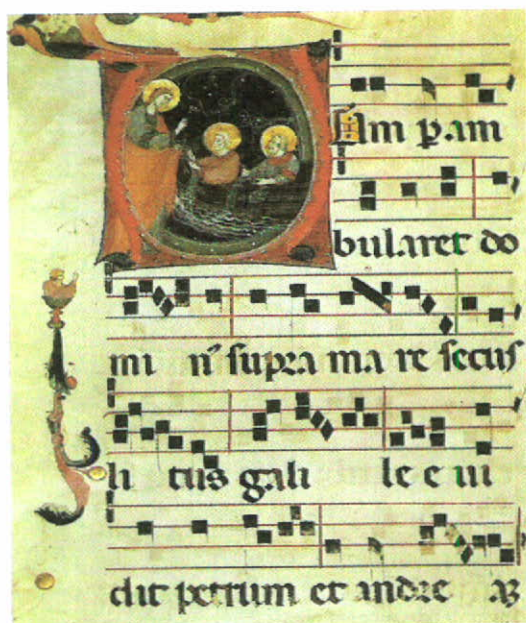 DUm ꝑam
bularet do
mi n̄ supra ma re secus
li tus gali le e ui
dit petrum et andre aꝫ